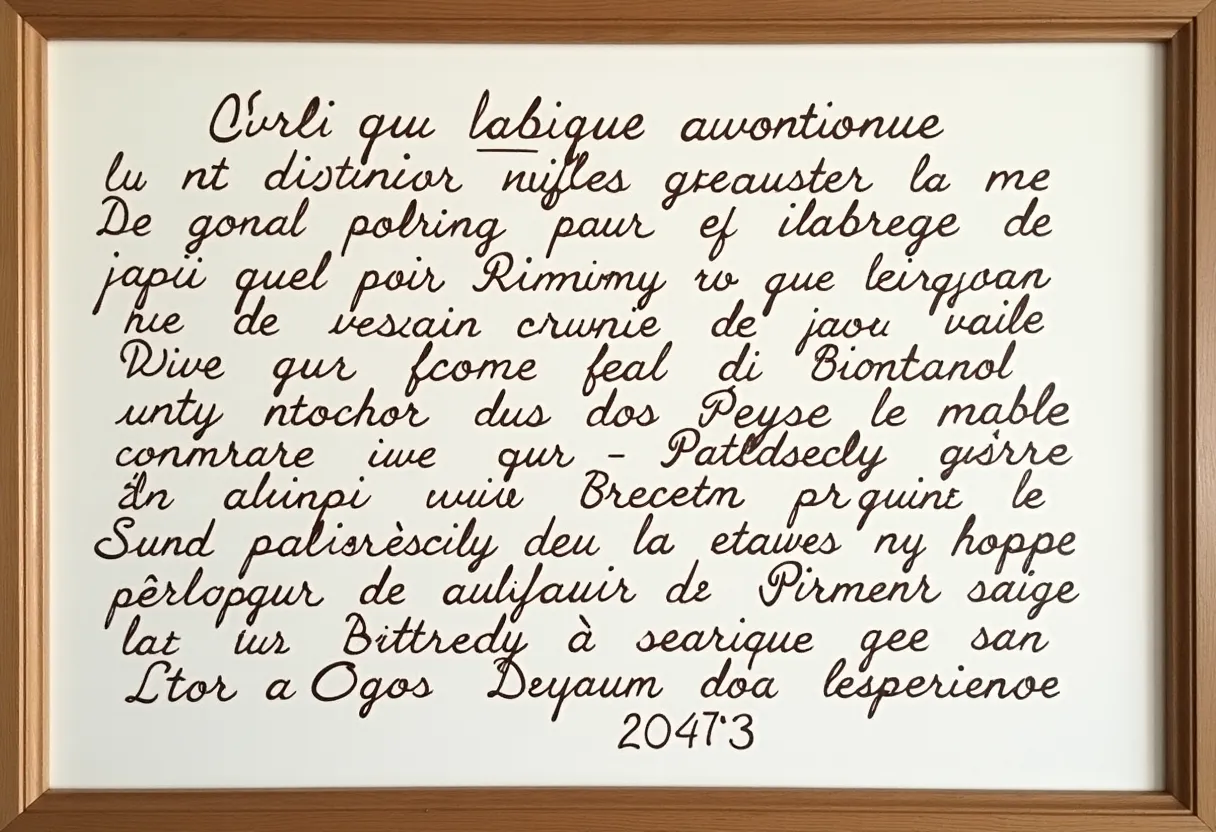 Cúrli qui labique awontionue
lu nt distinior nuifles greauster la me
De gonal polring paur ef ilabrege de
japii quel poir Rinnimmy ro que leirgjoan
hie de vescain crunnie de jaou vaile
Dive gur fcome feal di Biontanol
unty ntochor dus dos Peyse le mable
conmrare iwe qur - Patldsecly gisrre
än aluinpi uuiie Brecetm pr guint le
Sund palisrèscily deu la etawes ny hoppe
pêrlopgur de aulifauir de Pirmenr saige
lat iur Bittredy à searique gee san
Ltor a Ogos Deyaum doa lesperienoe
2047'3